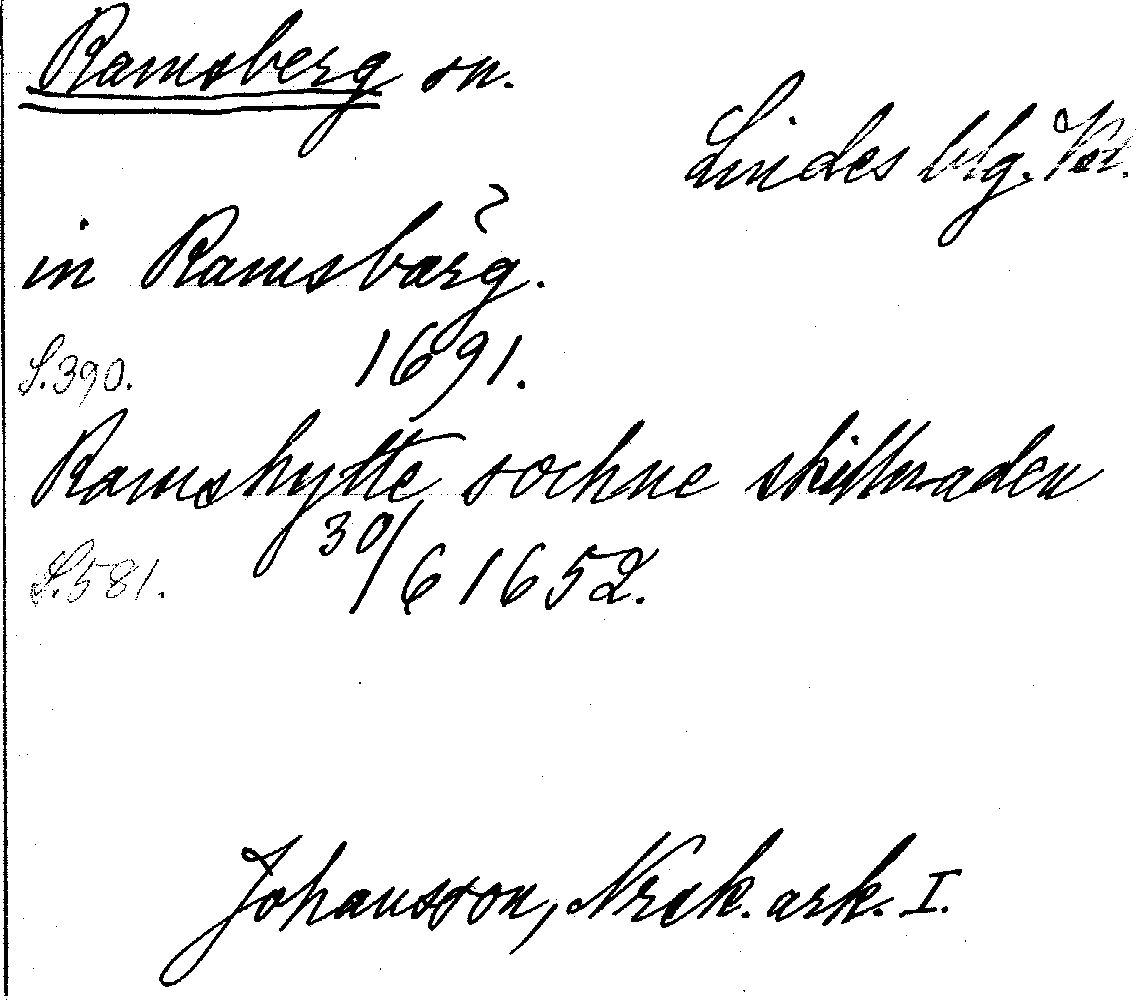 Ramsberg sn.
Lindes blg. Vstl.
in Ramsbärg.
S.390. 1691.
Ramshytte sochne skillnaden
S.581. 30/6 1652.
Johansson, Nrek. ark. I.